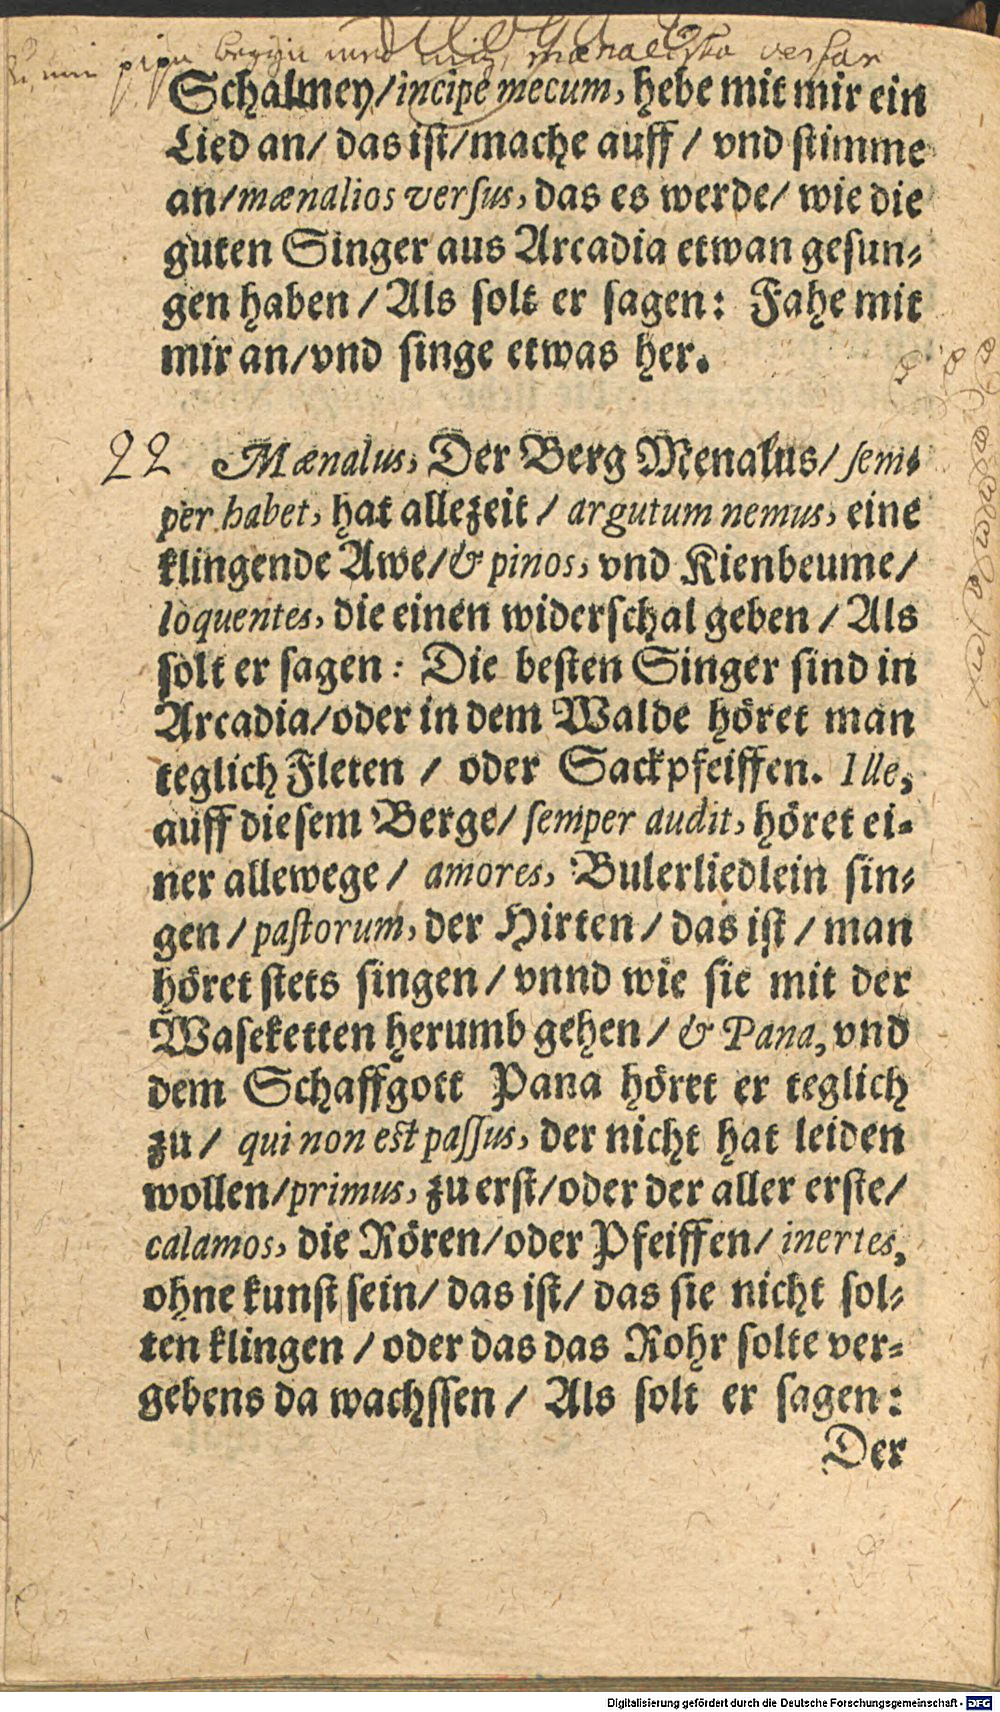 min pipa begijn med mig mænaliska versar
Schalmey/incipe mecum, hebe mit mir ein
Lied an/ das iſt/mache auff / vnd ſtimme
an/mænalios verſus, das es werde/ wie die
guten Singer aus Arcadia etwan geſun⸗
gen haben / Als ſolt er ſagen: Fahe mit
mir an/vnd ſinge etwas her.
22 Mænalus, Der Berg Menalus/ ſem⸗
per habet, hat allezeit / argutum nemus, eine
klingende Awe/& pinos, vnd Kienbeume/
loquentes, die einen widerſchal geben / Als
ſolt er ſagen: Die beſten Singer ſind in
Arcadia/oder in dem Walde höret man
teglich Fleten / oder Sackpfeiffen. Ille,
auff dieſem Berge/ ſemper audit, höret ei⸗
ner allewege / amores, Bulerliedlein ſin⸗
gen / paſtorum, der Hirten / das iſt / man
höret ſtets ſingen / vnnd wie ſie mit der
Waſeketten herumb gehen / & Pana, vnd
dem Schaffgott Pana höret er teglich
zu / qui non est paſſus, der nicht hat leiden
wollen/primus, zu erſt/oder der aller erſte/
calamos, die Rören/oder Pfeiffen/ inertes,
ohne kunſt ſein/ das iſt/ das ſie nicht ſol⸗
ten klingen / oder das das Rohr ſolte ver⸗
gebens da wachſſen / Als ſolt er ſagen:
Der
Digitalisierung gefördert durch die Deutsche Forschungsgemeinschaft - DFG